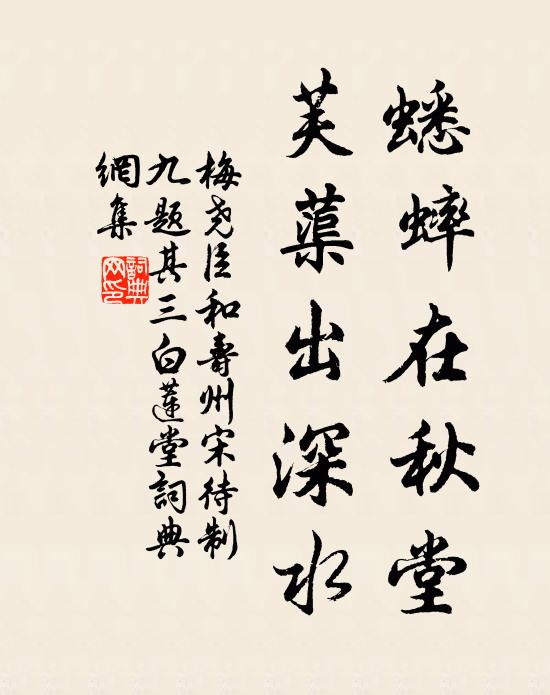 蟋蟀在秋堂
芙蕖出深水
梅尧臣和寿州宋待制
九题其三白莲堂词典
網集
詞典
网印